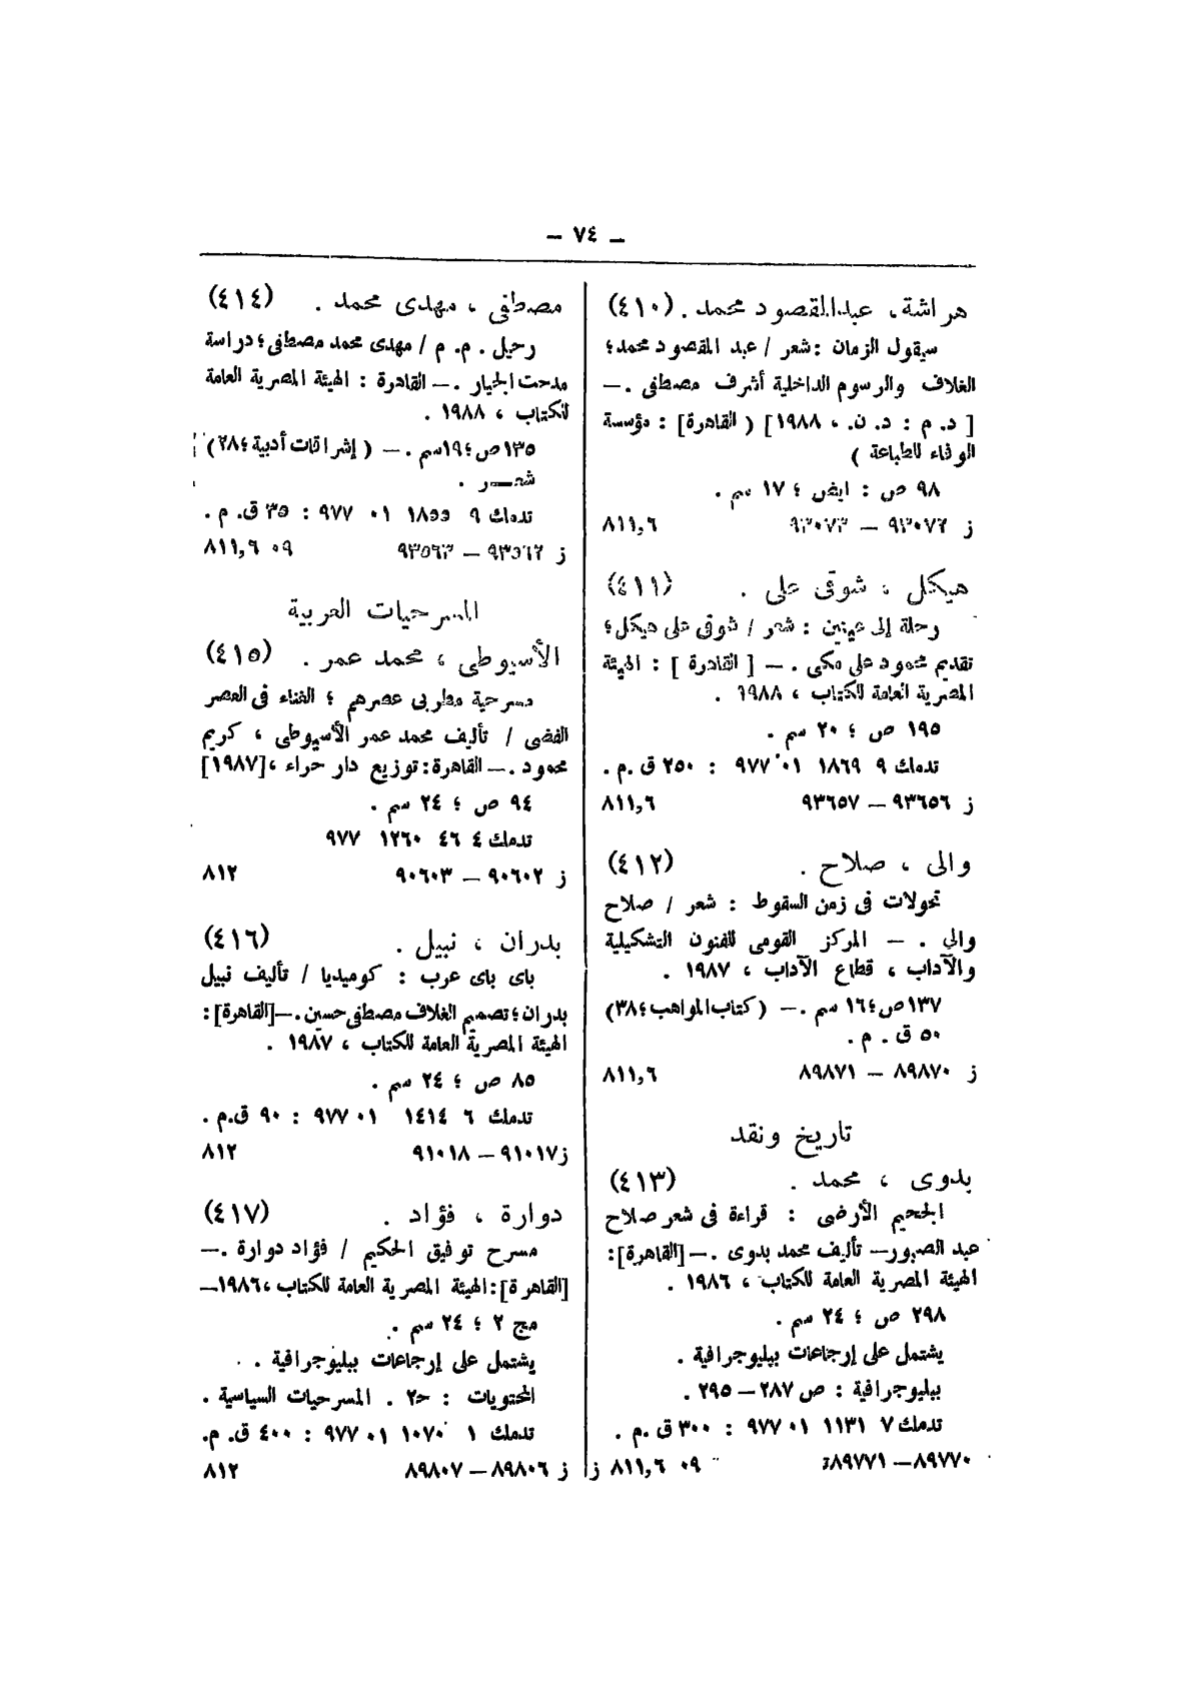 – ٧٤ –
هراشة، عبدالمقصود محمد . (٤١٠)
سيقول الزمان : شعر / عبد المقصود محمد؛
الغلاف والرسوم الداخلية أشرف مصطفى . —
[ د. م : د. ن. ، ١٩٨٨] ( القاهرة] : مؤسسة
الوفاء للطباعة )
٩٨ ص : ايض ؛ ١٧ سم .
ز ٩٣٠٧٢ — ٩٣٠٧٣ ٨١١,٦
هيكل ، شوقى على . (٤١١)
رحلة إلى عينين : شعر / شوقى على هيكل؛
تقديم محمود على مكى . — [ القاهرة ] : الهيئة
المصرية العامة للكتاب ، ١٩٨٨ .
١٩٥ ص ؛ ٢٠ سم .
تدمك ٩ ١٨٦٩ ٠١ ٩٧٧ : ٢٥٠ ق .م .
ز ٩٣٦٥٦ — ٩٣٦٥٧ ٨١١,٦
والى ، صلاح . (٤١٢)
تحولات فى زمن السقوط : شعر / صلاح
والي . — المركز القومى للفنون التشكيلية
والآداب ، قطاع الآداب ، ١٩٨٧ .
١٣٧ص؛١٦ سم .— (كتاب المواهب؛٣٨)
٥٠ ق . م .
ز ٨٩٨٧٠ — ٨٩٨٧١ ٨١١,٦
تاريخ ونقد
بدوى ، محمد . (٤١٣)
الجحيم الأرضى : قراءة فى شعر صلاح
عبد الصبور— تأليف محمد بدوى .—[القاهرة]:
الهيئة المصرية العامة للكتاب ، ١٩٨٦ .
٢٩٨ ص ؛ ٢٤ سم .
يشتمل على إرجاعات ببليوجرافية .
ببليوجرافية : ص ٢٨٧ — ٢٩٥ .
تدمك ٧ ١١٣١ ٠١ ٩٧٧ : ٣٠٠ ق .م .
٨٩٧٧٠—٨٩٧٧١ ٠٩ ٨١١,٦ ز
مصطفى ، مهدى محمد . (٤١٤)
رحيل . م. م / مهدى محمد مصطفى؛ دراسة
مدحت الجيار .— القاهرة : الهيئة المصرية العامة
للكتاب ، ١٩٨٨ .
١٣٥ص؛١٩سم .— ( إشراقات أدبية ؛٢٨)
شعــر .
تدمك ٩ ١٨٥٥ ٠١ ٩٧٧ : ٣٥ ق. م .
ز ٩٣٥٦٢ — ٩٣٥٦٣ ٠٩ ٨١١,٦
المسرحيات العربية
الأسيوطى ، محمد عمر . (٤١٥)
مسرحية مطربى عصرهم ؛ الغناء فى العصر
الفضى / تأليف محمد عمر الأسيوطى ، كريم
محمود .— القاهرة: توزيع دار حراء ،[١٩٨٧]
٩٤ ص ؛ ٢٤ سم .
تدمك ٤ ٤٦ ١٢٦٠ ٩٧٧
ز ٩٠٦٠٢ — ٩٠٦٠٣ ٨١٢
بدران ، نبيل . (٤١٦)
باى باى عرب : كوميديا / تأليف نبيل
بدران ؛ تصميم الغلاف مصطفى حسين .—[القاهرة]:
الهيئة المصرية العامة للكتاب ، ١٩٨٧ .
٨٥ ص ؛ ٢٤ سم .
تدمك ٦ ١٤١٤ ٠١ ٩٧٧ : ٩٠ ق.م .
ز٩١٠١٧ — ٩١٠١٨ ٨١٢
دوارة ، فؤاد . (٤١٧)
مسرح توفيق الحكيم / فؤاد دوارة .—
[القاهرة]: الهيئة المصرية العامة للكتاب ،١٩٨٦—
مج ٢ ؛ ٢٤ سم .
يشتمل على إرجاعات ببليوجرافية .
المحتويات : حـ٢ . المسرحيات السياسية .
تدمك ١ ١٠٧٠ ٠١ ٩٧٧ : ٤٠٠ ق. م.
ز ٨٩٨٠٦ — ٨٩٨٠٧ ٨١٢